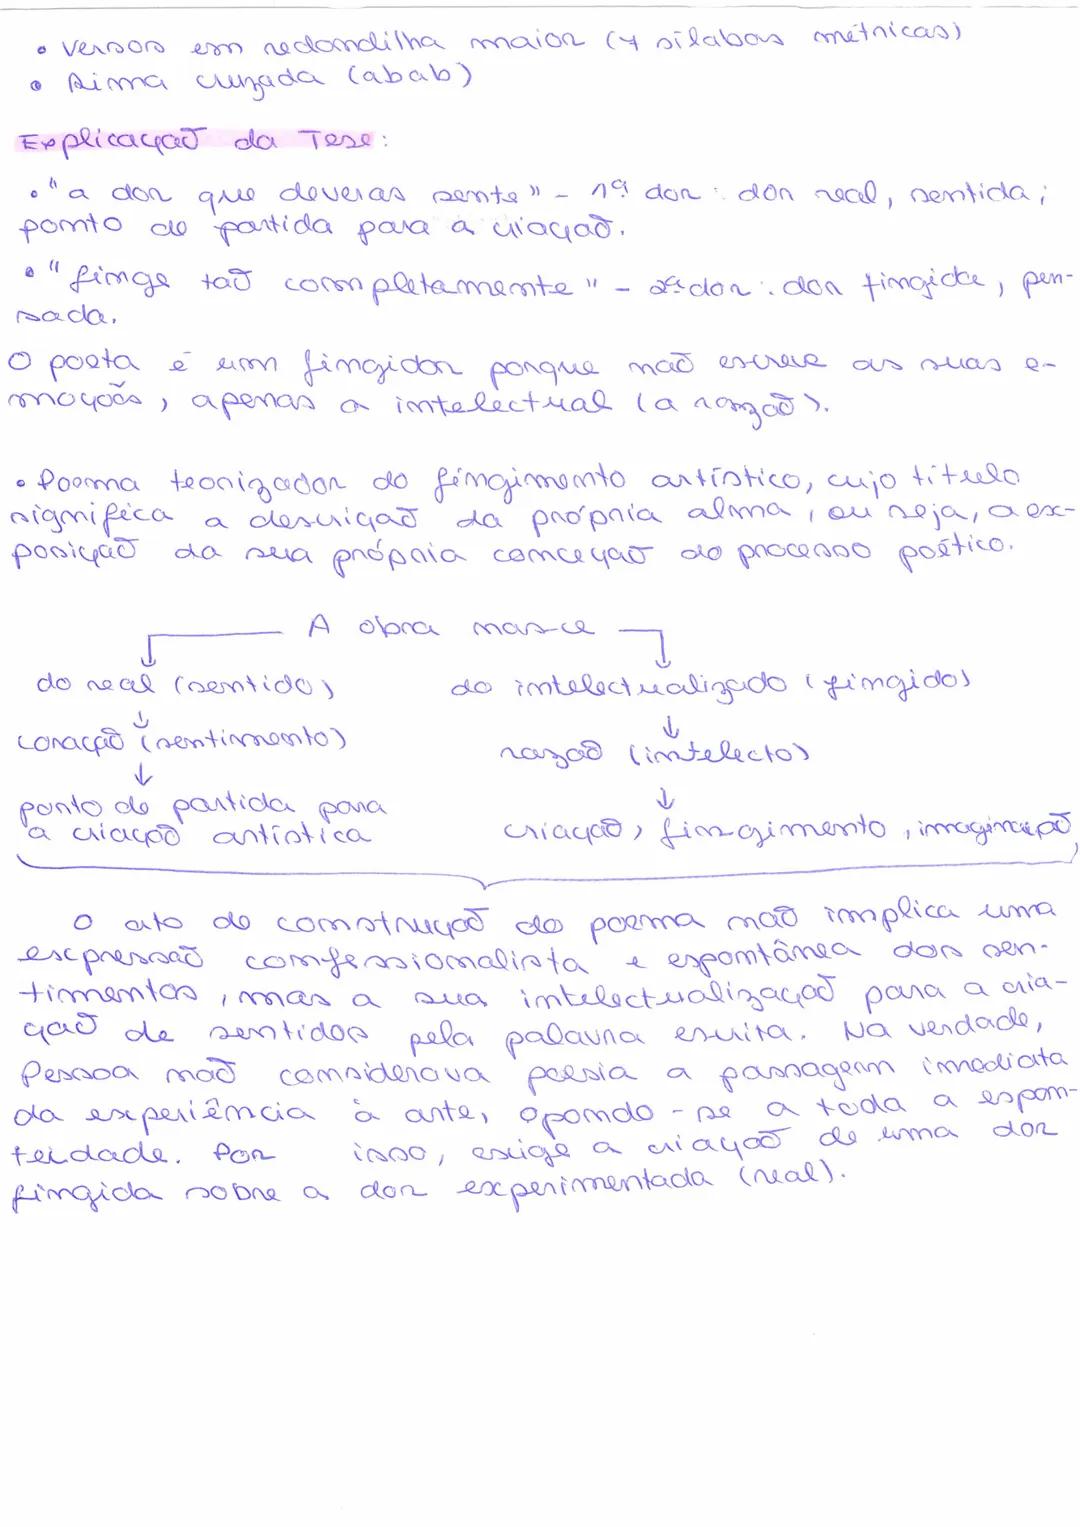 • Versos em redondilha maior (7 sílabas métricas)
• Rima cruzada (abab)
Explicação da Tese:
• "a dor que deveras sente" - 1ª dor: dor real, sentida;
ponto de partida para a criação.
• "finge tão completamente" - 2ª dor: dor fingida, pen-
sada.
O poeta é um fingidor porque não escreve as suas e-
moções, apenas a intelectual (a razão).
• Poema teorizador do fingimento artístico, cujo título
significa a descrição da própria alma, ou seja, a ex-
posição da sua própria conceção do processo poético.
A obra nasce
do real (sentido) do intelectualizado (fingido)
↓ ↓
coração (sentimento) razão (intelecto)
↓ ↓
ponto de partida para
a criação artística criação, fingimento, imaginação
O ato de construção do poema não implica uma
expressão confessionalista e espontânea dos sen-
timentos, mas a sua intelectualização para a cria-
ção de sentidos pela palavra escrita. Na verdade,
Pessoa não considerava poesia a passagem imediata
da experiência à arte, opondo-se a toda a espon-
teidade. Por isso, exige a criação de uma dor
fingida sobre a dor experimentada (real).